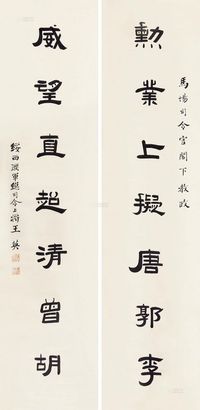 馬場司令官閣下教政
勳業上擬唐郭李
威望直超清曾胡
綏西軍總司令上將王英